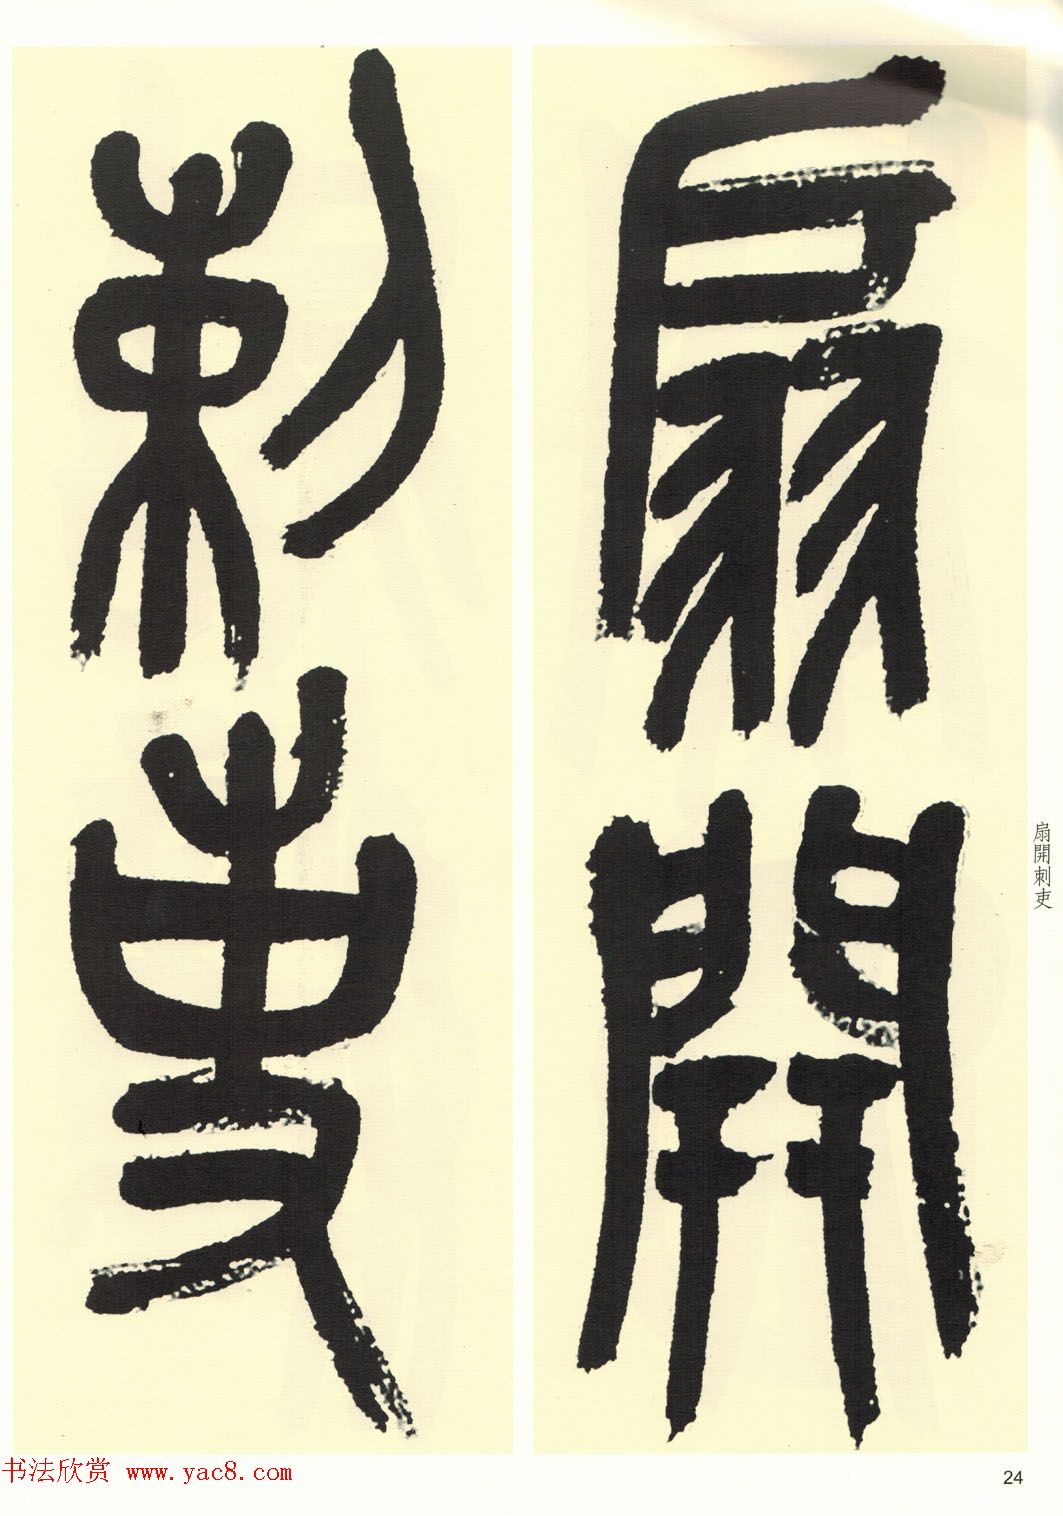 扇開
刺吏
扇開刺吏
书法欣赏 www.yac8.com
24